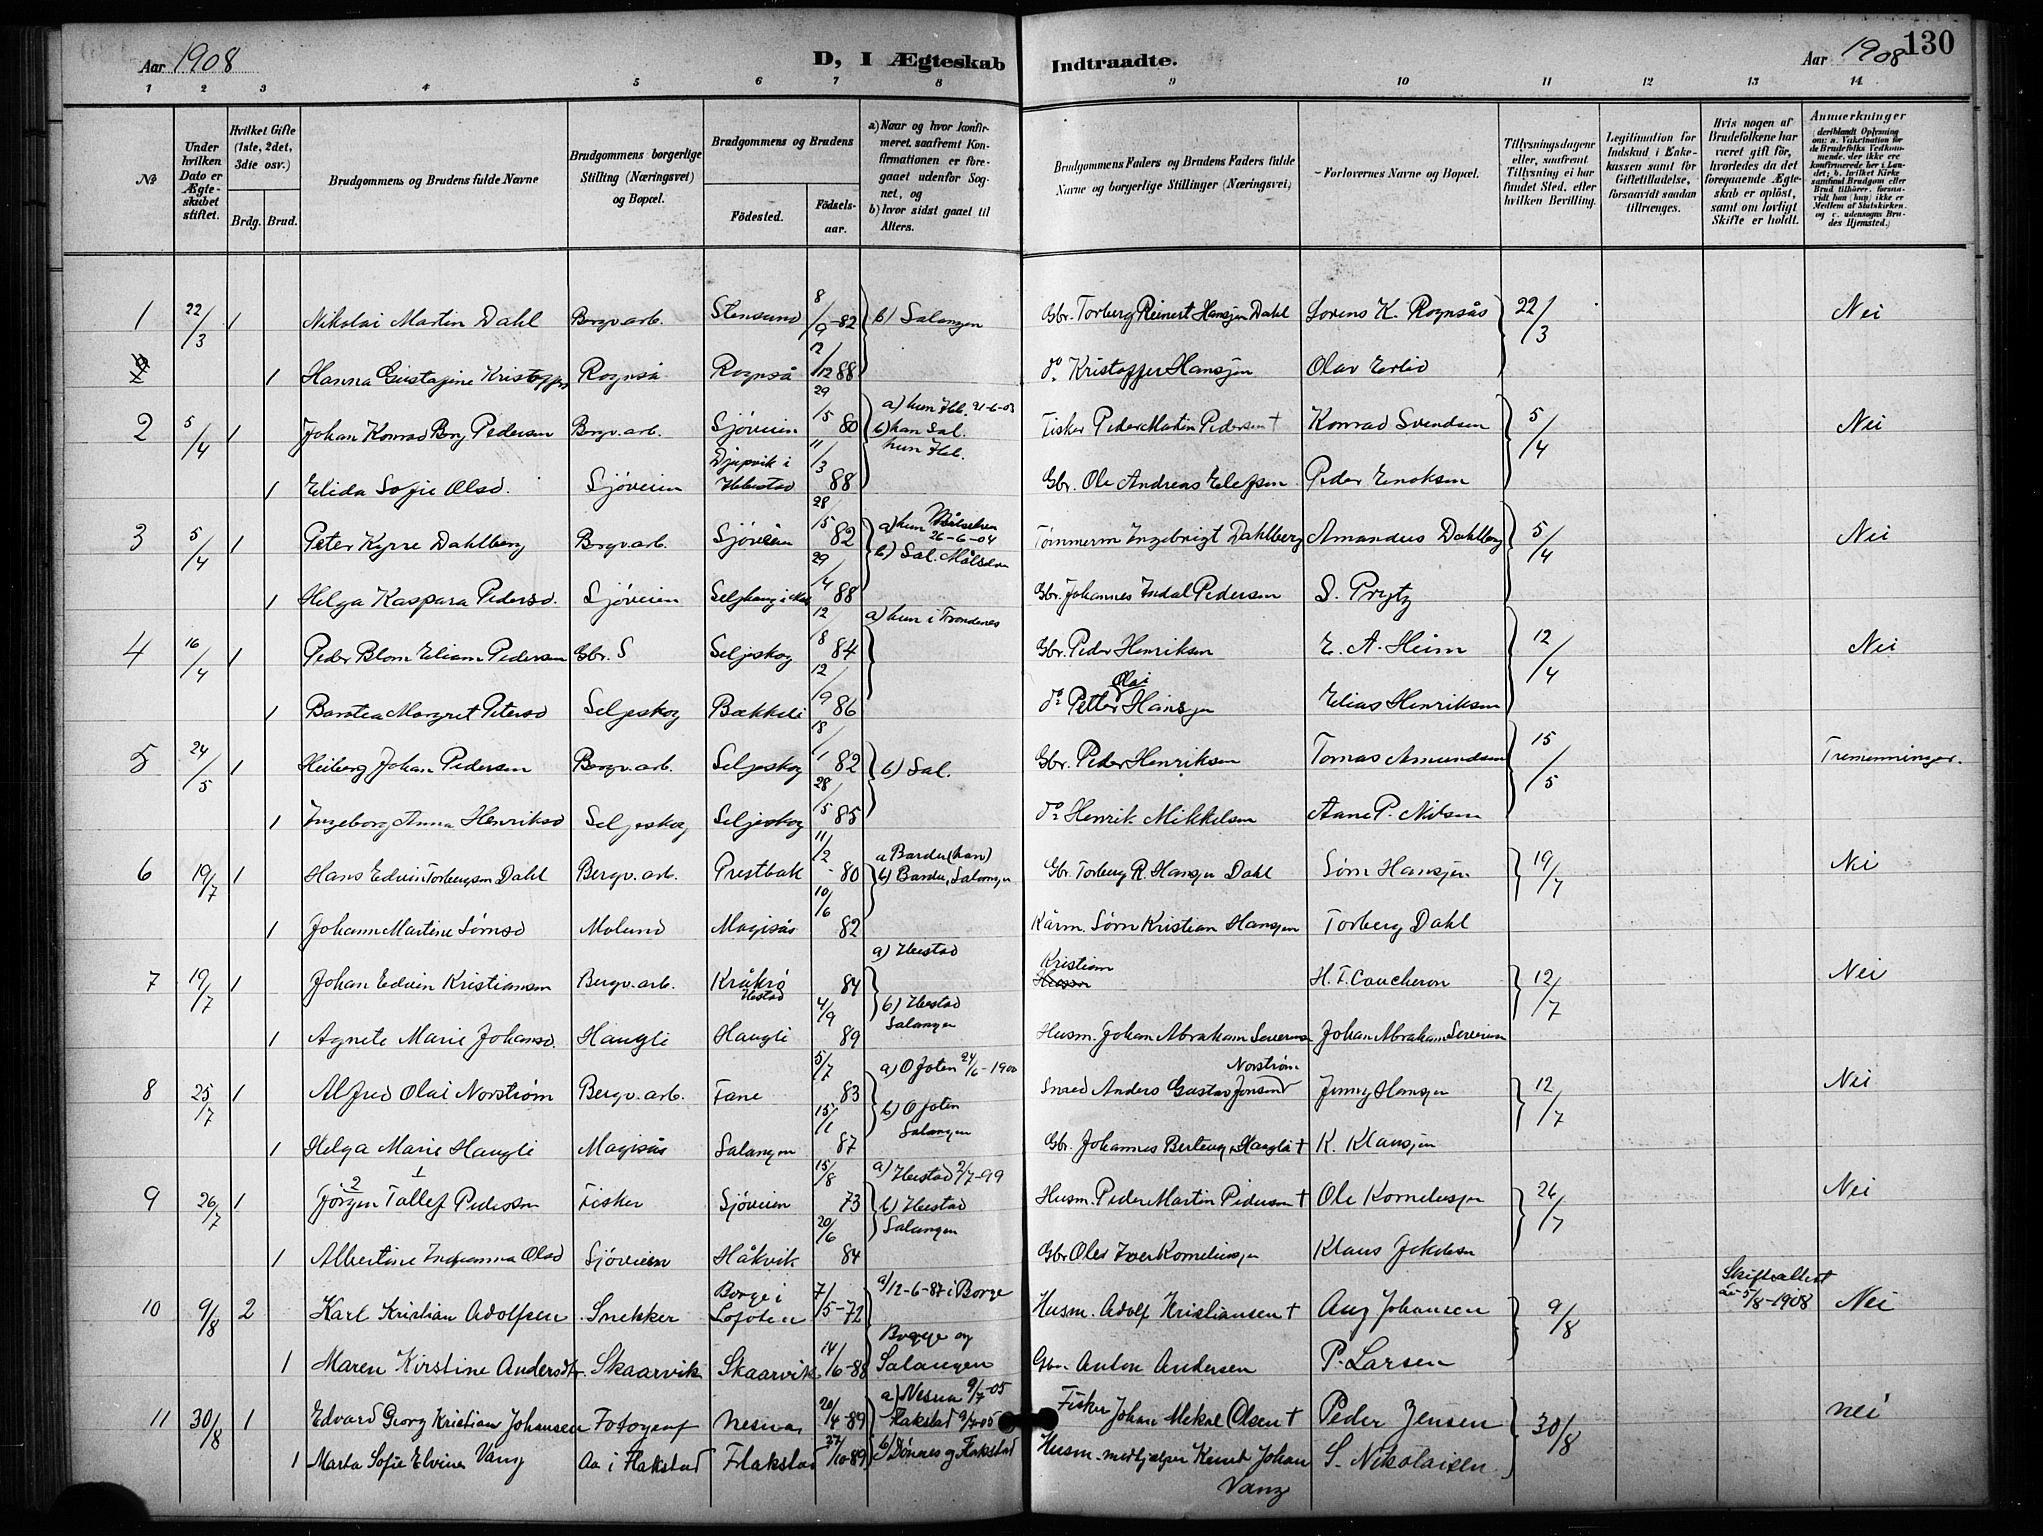 Aar 1908
D, I Ægteskab
Indtraadte.
Aar 1908
130
1 2 3 4 5 6 7 8 9 10 11 12 13 14
№
Under hvilken Dato er Ægteskabet stiftet.
Hvilket Gifte (1ste, 2det, 3die osv.)
Brdg. Brud.
Brudgommens og Brudens fulde Navne
Brudgommens borgerlige Stilling (Næringsvei) og Bopæl.
Brudgommens og Brudens
Fødested. Fødselsaar.
a) Naar og hvor konfirmeret, saafremt Konfirmationen er foregaaet udenfor Sognet, og
b) hvor sidst gaaet til Alters.
Brudgommens Faders og Brudens Faders fulde Navne og borgerlige Stillinger (Næringsvei)
Forlovernes Navne og Bopæl.
Tillysningsdagene eller, saafremt Tillysning ei har fundet Sted, efter hvilken Bevilling.
Legitimation for Indskud i Enkekassen samt for Giftetilladelse, forsaavidt saadan tiltrænges.
Hvis nogen af Brudefolkene har været gift før, hvorledes da det foregaaende Ægteskab er opløst, samt om lovligt Skifte er holdt.
Anmærkninger
(deriblandt Oplysning om: a. Vakcination for de Brudefolks Vedkommende, der ikke ere konfirmerede her i Landet; b. hvilket Kirkesamfund Brudgom eller Brud tilhører, forsaavidt han (hun) ikke er Medlem af Statskirken, og c. udensogns Brudes Hjemsted.)
1 22/3 1 Nikolai Martin Dahl Bergv.arb. Stensund 8/9-82 b) Salangen Gbr. Torberg Reinert Hansen Dahl Lorens K. Rognsås 22/3 Nei
1 Hanna Gustafine Rognså Rognså 12/12 88 do Kristoffer Hansen Olav
2 5/4 1 Johan Konrad Berg Pedersen Bergv.arb. Sjøveien 29/15 80 a) hun Ibb. 21-6-03 b) han Sal. hun Ibb. Fisker Peder Martin Pedersen † Konrad Svendsen 5/4 Nei
1 Elida Sofie Olsd. Sjøveien Djupvik i Ibbestad 11/3 88 Gbr. Ole Andreas Peder Enoksen
3 5/4 1 Peter Kyrre Dahlberg Bergv.arb. Sjøveien 28/15 82 a) hun Målselven 26-6-04 b) Sal. Målselven Tømmerm Ingebrigt Dahlberg Amandus Dahlberg 5/4 Nei
1 Helga Kaspara Pedersd. Sjøveien 29/4 88 Gbr. Johannes Indal Pedersen S. Prytz
4 16/4 1 Peder Blom Eliam Pedersen Gbr. S Seljeskog 12/8 84 a) hun i Trondenes Gbr. Peder Henriksen E. A. Heim 12/4 Nei
1 Margret Petersd Seljeskog Bækkeli 12/9 86 do Petter Olai Hansen Elias Henriksen
5 24/5 1 Heiberg Johan Pedersen Bergv.arb. Seljeskog 18/1 82 b) Sal. Gbr. Peder Henriksen Tomas Amundsen 15/5 Tremenninger.
1 Ingeborg Anna Henriksd Seljeskog Seljeskog 28/5 85 do Henrik Mikkelsen Aane P. Nilsen
6 19/7 1 Hans Edvin Torbergsen Dahl Bergv.arb. Prestbak 11/2 - 80 a Bardu (han) b) Bardu, Salangen Gbr Torberg R. Hansen Dahl Sørn Hansen 19/7 Nei
1 Johann Martine Sørnsd Molund Magisås 10/6 82 Kårm. Sørn Kristian Hansen Torberg Dahl
7 19/7 1 Johan Edvin Kristiansen Bergv.arb. Kråkrø Ibestad 84 a) Ibestad b) Ibestad Salangen Kristian H. T. Caucheron 12/7 Nei
1 Agnete Marie Johansd. Haugli Haugli 4/9 89 Husm. Johan Abraham Severinsen Johan Abraham Severinsen
8 25/7 1 Alfred Olai Norstrøm Bergv.arb. Fane 5/7 83 a) Ofoten 24/6-1900 b) Ofoten Salangen Smed Anders Gustav Jensen Norstrøm Jenny Hansen 12/7 Nei
1 Helga Marie Haugli Magisås Salangen 15/1 87 Gbr. Johannes Haugli † K. Klausen
9 26/7 1 Jørgen 2 Tallef 1 Pedersen Fisker Sjøveien 15/8 73 a) Ibestad 2/7-99 b) Ibestad Salangen Husm. Peder Martin Pedersen † Ole Korneliusen 26/7 Nei
1 Albertine Ingeanna Olsd Sjøveien Håkvik 20/6 84 Gbr Oles Iver Korneliusen Klaus Jakobsen
10 9/8 2 Karl Kristian Adolfsen Snekker Borge i Lofoten 7/5-72 a/12-6-87 i Borge Borge og Salangen Husm. Adolf Kristiansen † Aug Johansen 9/8 Skifteattest av 5/8-1908 Nei
1 Maren Kirstine Andersdtr. Skaarvik Skaarvik 14/6-88 Gbr. Anton Andersen P. Larsen
11 30/8 1 Edvard Georg Kristian Johansen Fotograf Nesna 20/4-89 a) Nesna 9/7-05 Flakstad 9/7-05 b) Dønnes og Flakstad Fisker Johan Mekal Olsen † Peder Jensen 30/8 nei
1 Marta Sofie Elvine Vang Aa i Flakstad Flakstad 27/10-89 Husm. medhjælper Kenut Johan Vang S. Nikolaisen